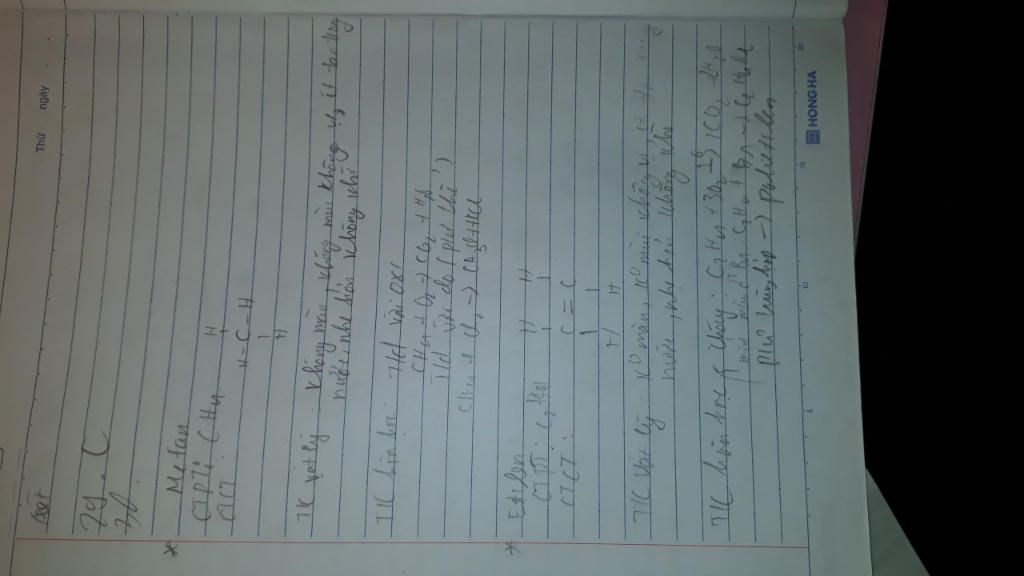 Thứ ngày
29. C
30
* Metan
CTPT: CH4
CTCT: H
H - C - H
H
TC vật lý: không màu, không mùi không vị, ít tan trong
nước, nhẹ hơn không khí
TC hóa học: Td với oxi
CH4 + O2 → CO2 + H2O
Td với clo (pư thế)
CH4 + Cl2 → CH3Cl + HCl
* Etilen
CTPT: C2H4
CTCT: H H
C = C
H H
TC vật lý: K0 màu, K0 mùi không vị ít tan trong
nước, nhẹ hơn không khí
TC hóa học: cháy: C2H4 + 3O2 → 2CO2 + 2H2O
C2H4 + Br2 → C2H4Br2
Pư trùng hợp → polietilen
HONG HA
5 10 15 20